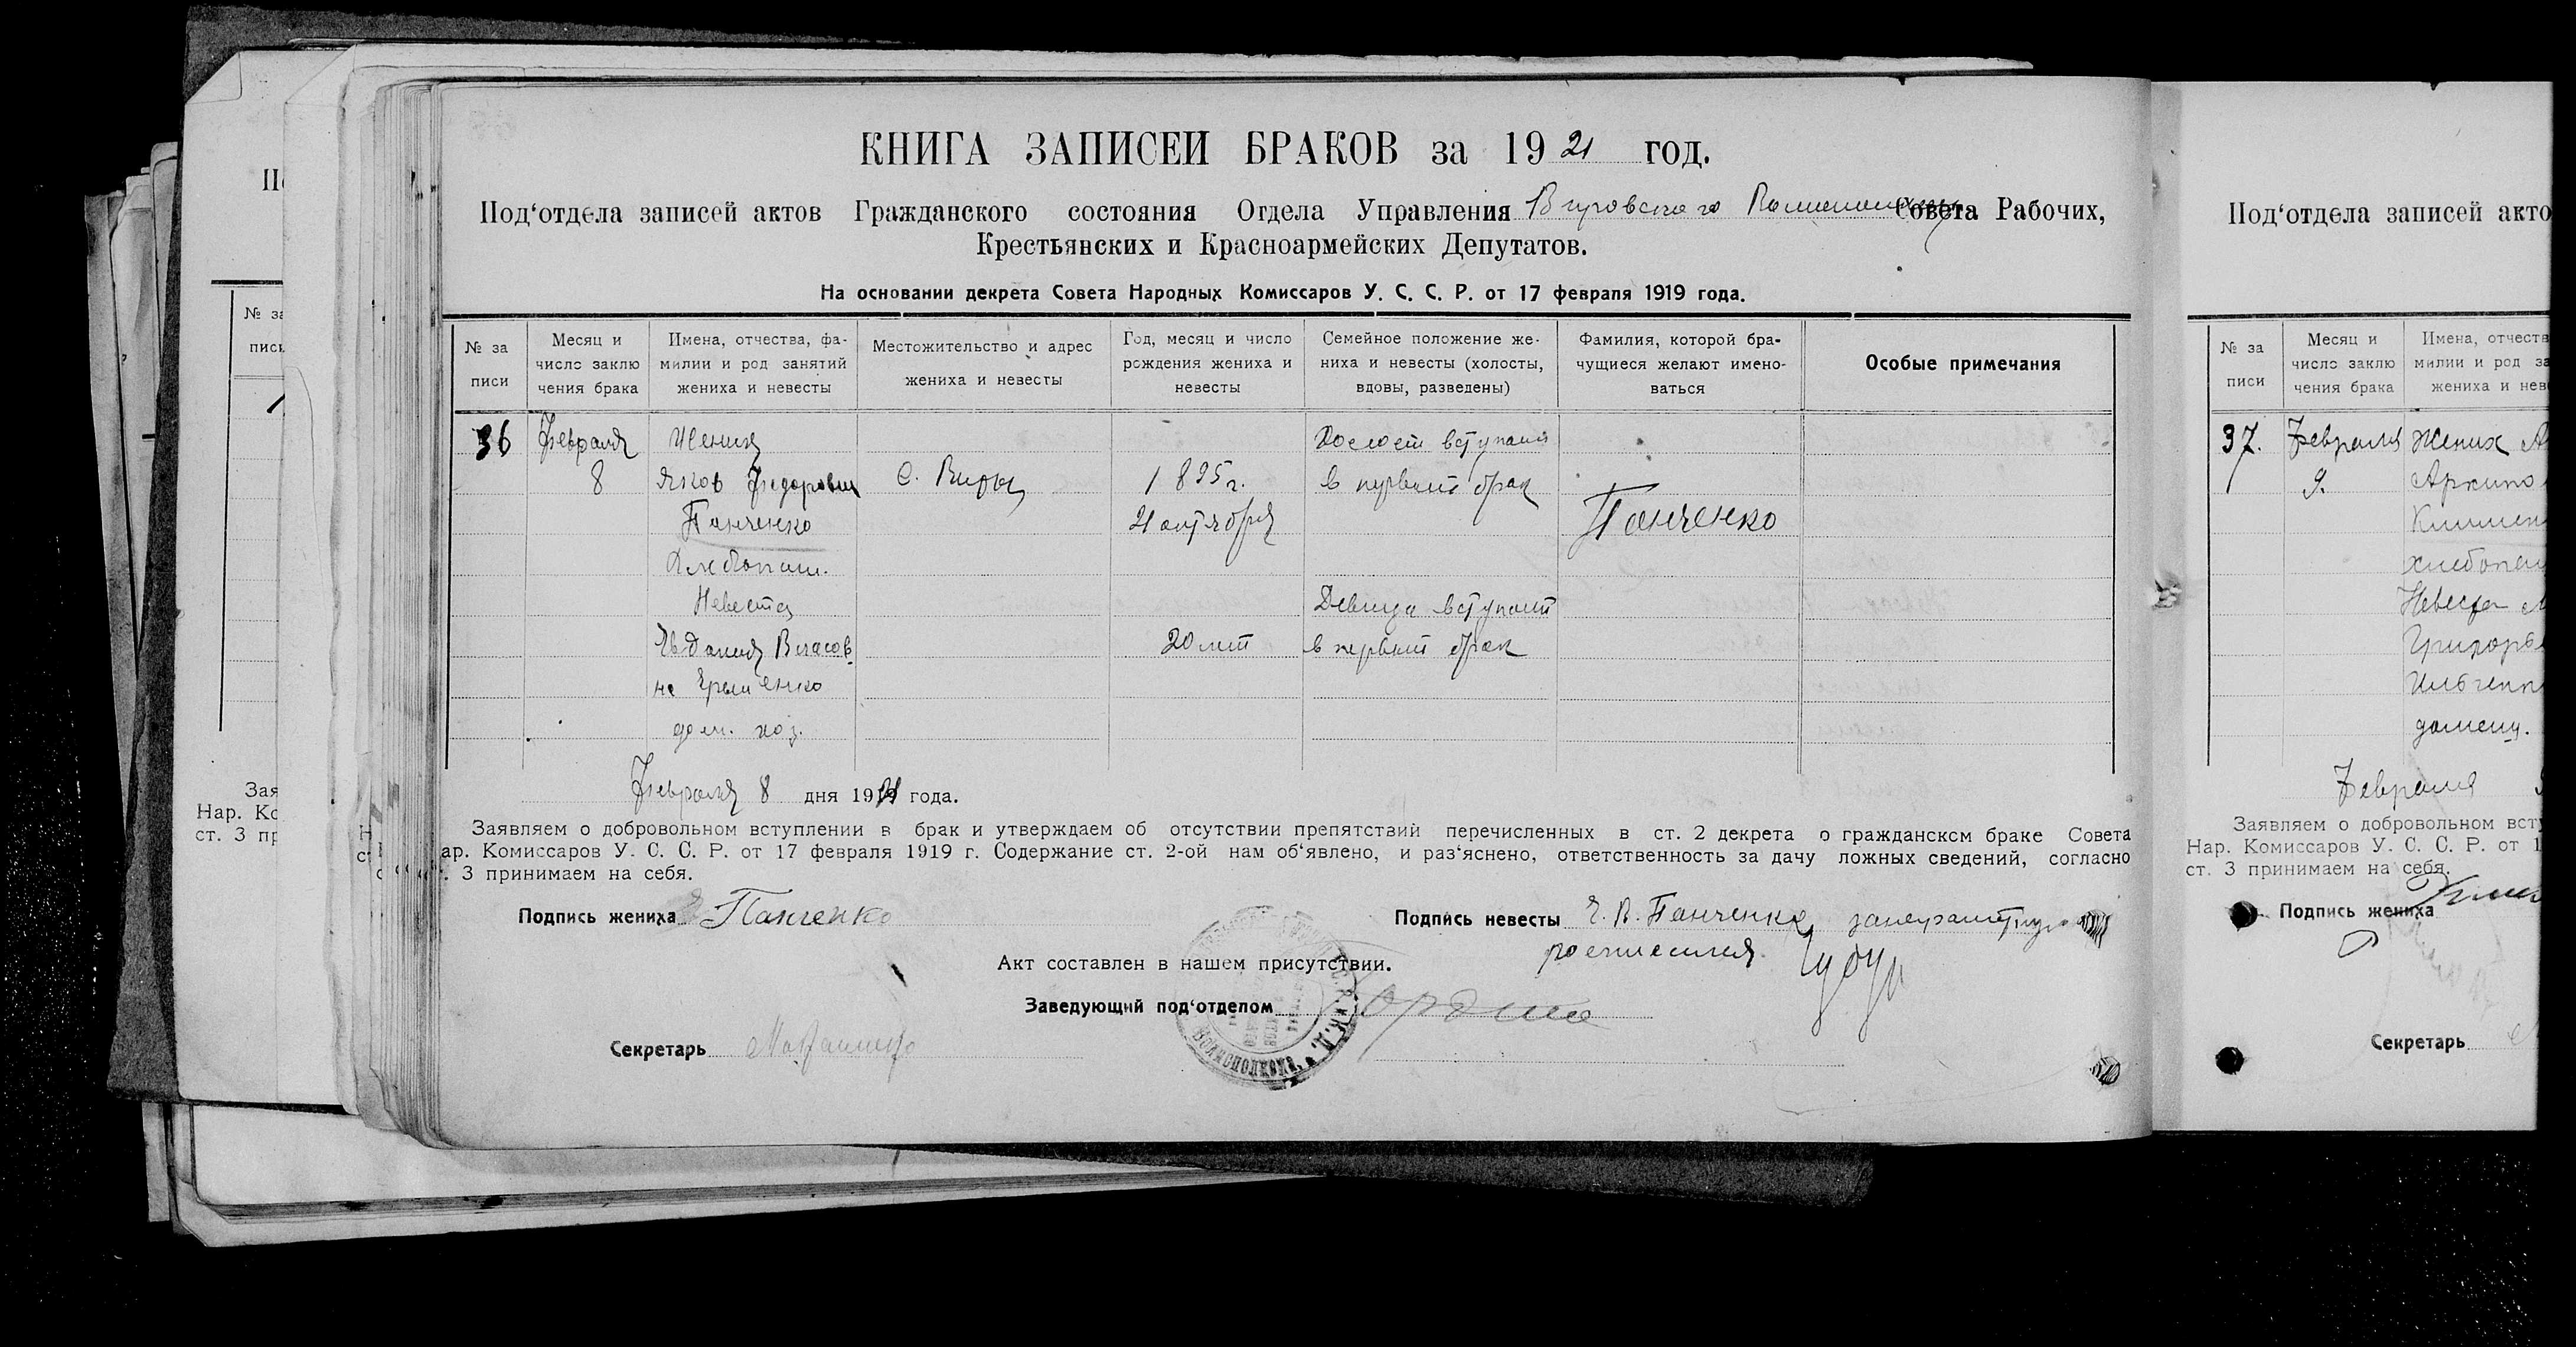 КНИГА ЗАПИСЕЙ БРАКОВ за 1921 год.
Под‘отдела записей актов Гражданского состояния Отдела Управления Вировского Совета Рабочих,
Крестьянских и Красноармейских Депутатов.
На основании декрета Совета Народных Комиссаров У. С. С. Р. от 17 февраля 1919 года.
№ за
писи
Месяц и
число заклю
чения брака
Имена, отчества, фа-
милии и род занятий
жениха и невесты
Местожительство и адрес
жениха и невесты
Год, месяц и число
рождения жениха и
невесты
Семейное положение же-
ниха и невесты (холосты,
вдовы, разведены)
Фамилия, которой бра-
чущиеся желают имено-
ваться
Особые примечания
36
Февраля
8
Жених
Яков Федорович
Панченко
Хлебопаш.
Невеста
Евдокия Власов
на Ерьменко
дом. хоз.
С. Виры
1895 г.
21 октября
20 лет
Холост вступает
в первый брак
Девица вступает
в первый брак
Панченко
Февраля 8 дня 1921 года.
Заявляем о добровольном вступлении в брак и утверждаем об отсутствии препятствий перечисленных в ст. 2 декрета о гражданском браке Совета
ар. Комиссаров У. С. С. Р. от 17 февраля 1919 г. Содержание ст. 2-ой нам об‘явлено, и раз‘яснено, ответственность за дачу ложных сведений, согласно
. 3 принимаем на себя.
Подпись жениха Панченко
Подпись невесты Е. В. Панченко
Акт составлен в нашем присутствии.
Заведующий под‘отделом
Секретарь
Под‘отдела записей акто
№ за
писи
Месяц и
число заклю
чения брака
Имена, отчеств
милии и род за
жениха и нев
37.
Февраля
9.
Жених А
Архипо
Клименк
хлебопаш
Невеста
Григорьев
Ильченк
домаш.
Февраля
Заявляем о добровольном вст
Нар. Комиссаров У. С. С. Р. от 1
ст. 3 принимаем на себя.
Подпись жениха
Секретарь
№ за
писи
Зая
Нар. Ко
ст. 3 пр